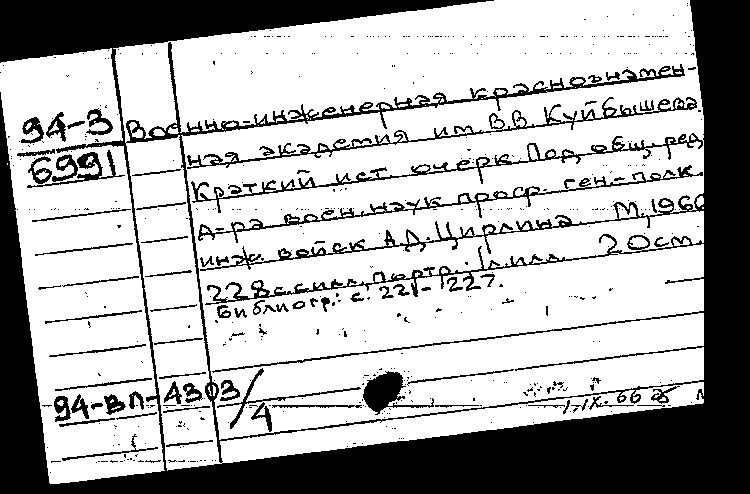 94-3
6991
Военно-инженерная краснознамен-
ная академия им. В.В. Куйбышева
Краткий ист очерк Под общ. ред
д-ра воен. наук проф. ген.-полк.
инж войск А.Д. Цирлина М, 1966
228 с. с илл, портр.; 1 л. илл. 20 см.
Библиогр.: с. 221-227.
94-вп-4303/4
1.IX.66